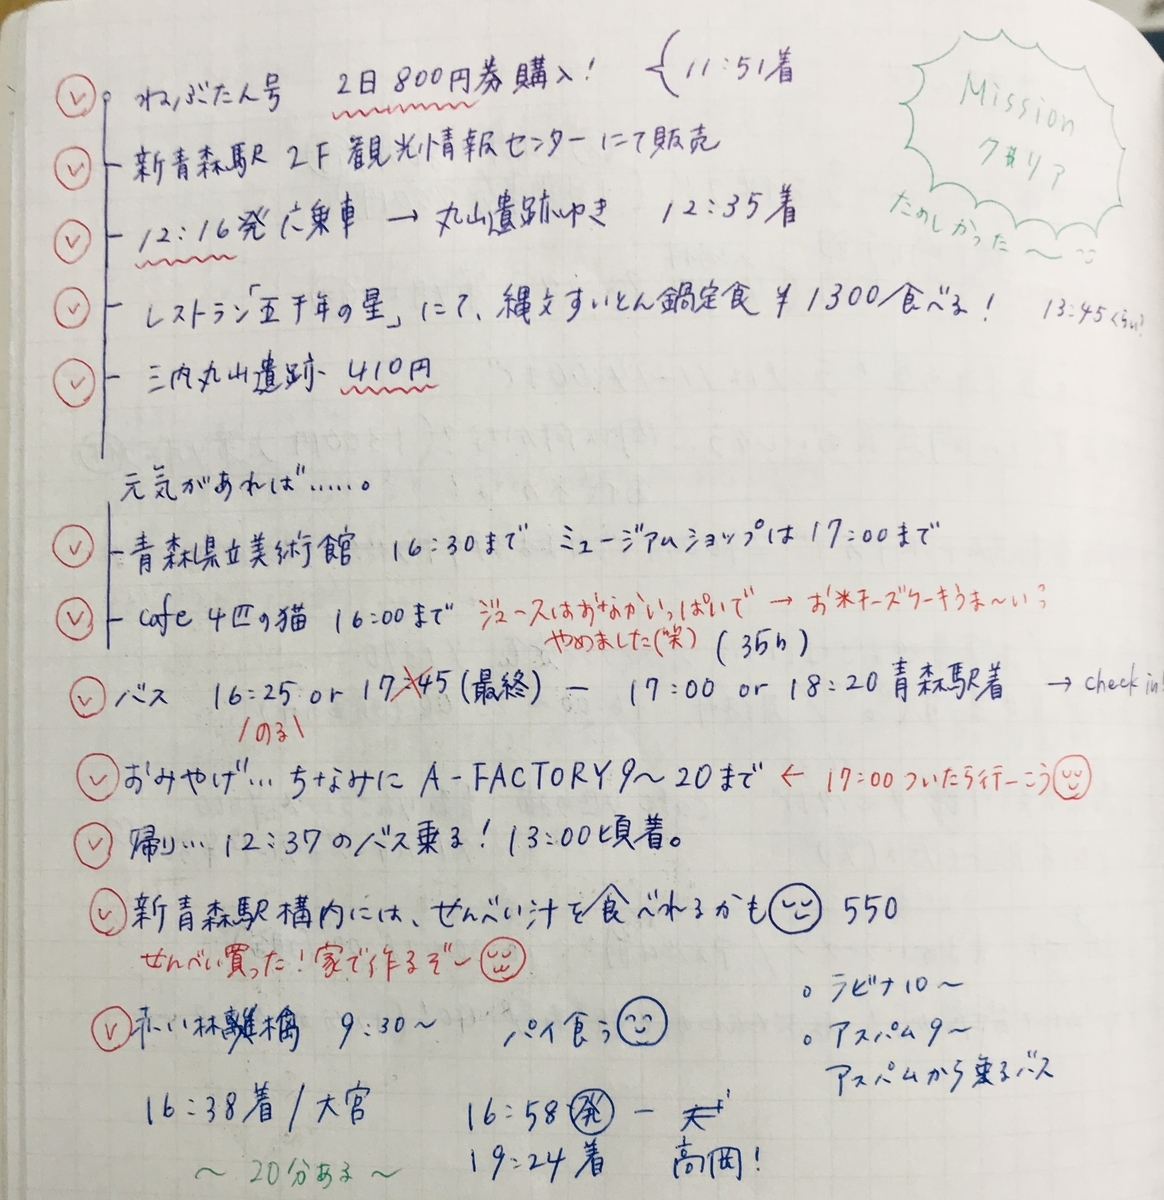 ねぶたん号 2日800円券購入! 11:51着
Mission
クリア
たのしかった〜
新青森駅 2F 観光情報センターにて販売
12:16発に乗車 → 丸山遺跡ゆき 12:35着
レストラン「五千年の星」にて、縄文すいとん鍋定食 ¥1300/食べる! 13:45くらい?
三内丸山遺跡 410円
元気があれば……。
青森県立美術館 16:30まで ミュージアムショップは17:00まで
cafe 4匹の猫 16:00まで ジュースはおなかいっぱいで → お米チーズケーキうま〜い
やめました(笑)
バス 16:25 or 17:45(最終) − 17:00 or 18:20 青森駅着 → check in!
\のる/
おみやげ… ちなみに A-FACTORY 9〜20まで ← 17:00ついたら行こう
帰り… 12:37のバス乗る! 13:00頃着。
新青森駅構内には、せんべい汁を食べれるかも 550
せんべい買った!家で作るぞ〜
赤い林檎 9:30〜 パイ食う
ラビナ10〜
アスパム9〜
アスパムから乗るバス
16:38着/大宮 16:58発 −
19:24着 高岡!
〜20分ある〜